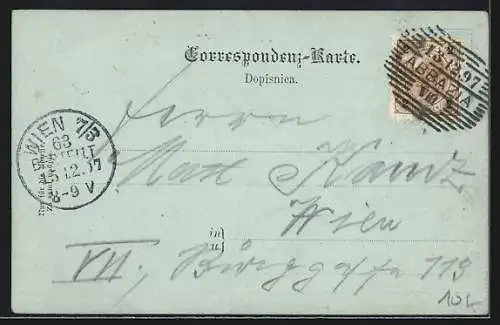 Correspondenz-Karte.
Dopisnica.
13.12.97
ABBAZIA
WIEN 7/3
63
BESTELLT
12.97
8-9 V
Herrn
Max Kanz
in
u
Wien
VII. Burggasse 113